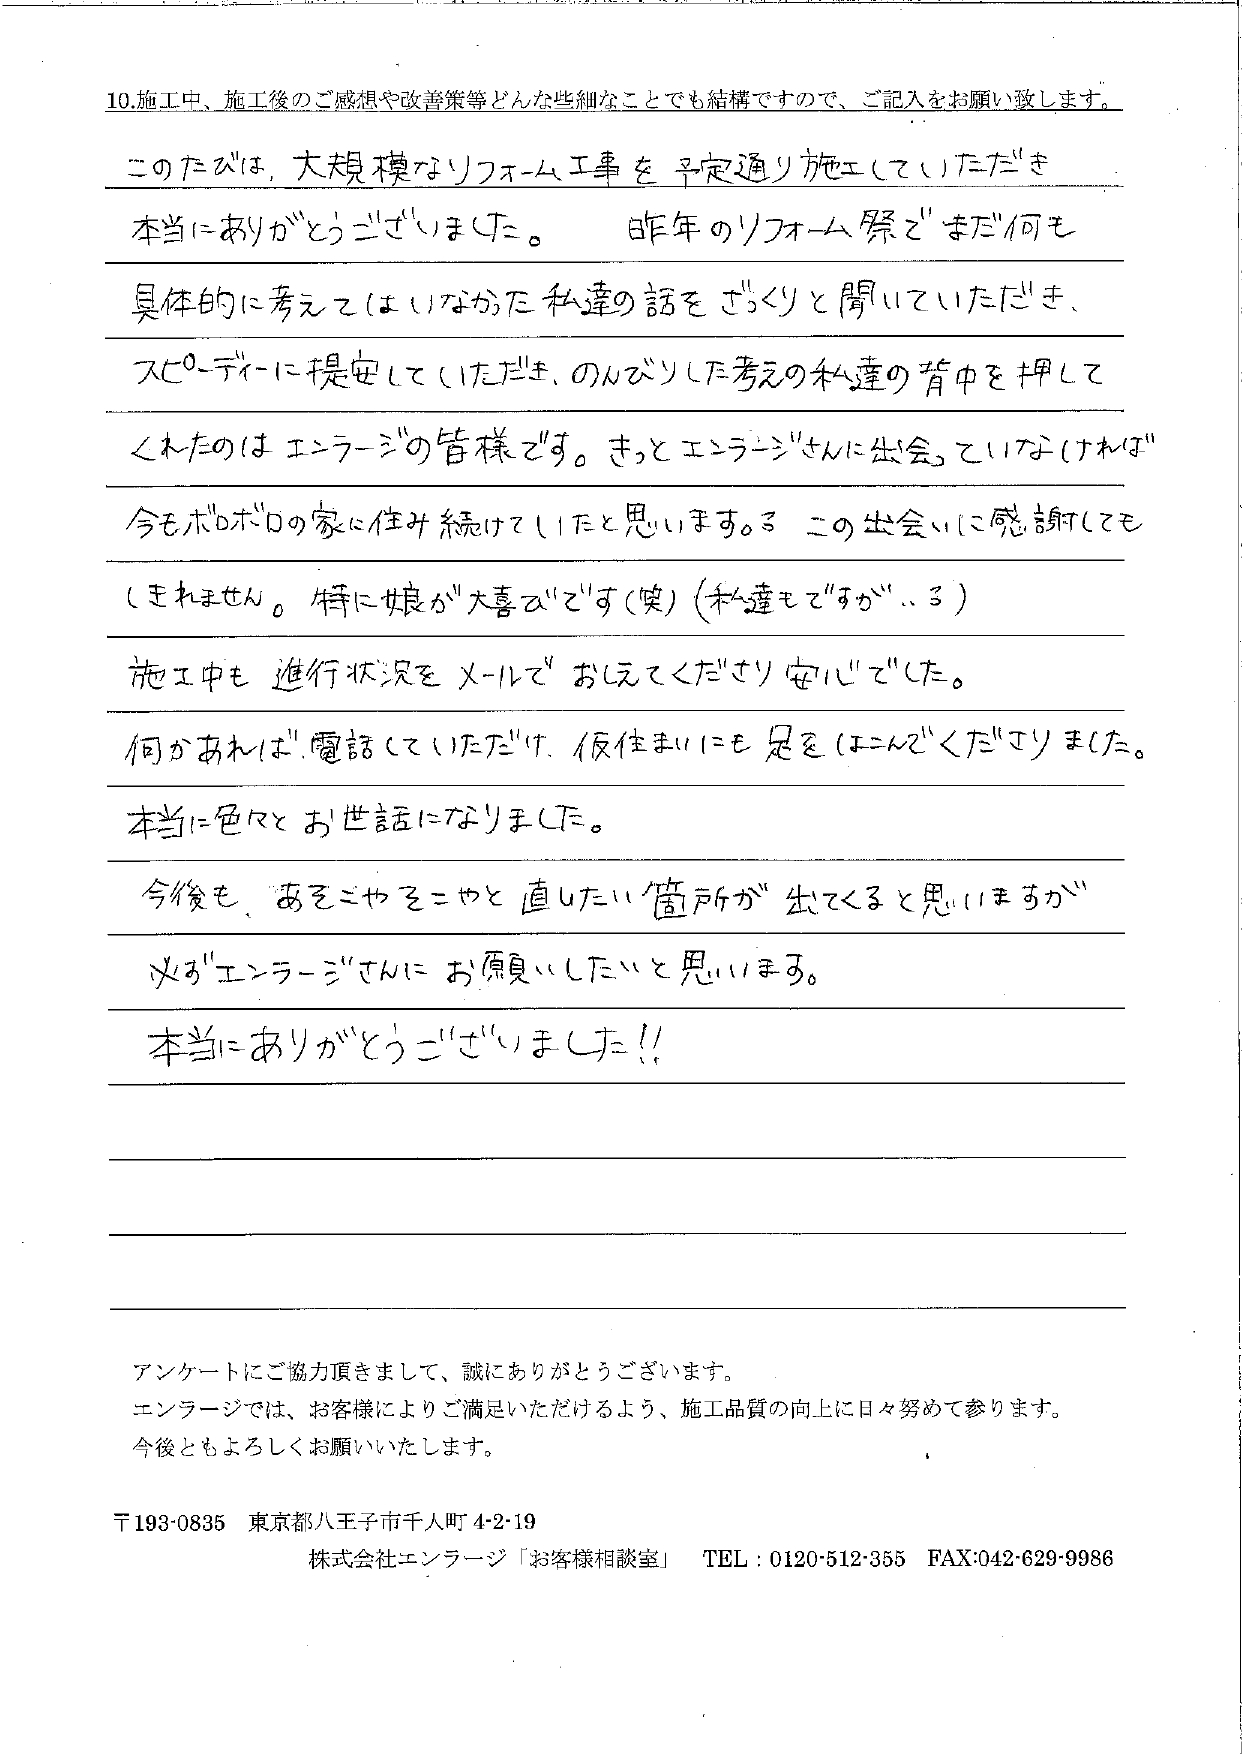 10.施工中、施工後のご感想や改善策等どんな些細なことでも結構ですので、ご記入をお願い致します。
このたびは、大規模なリフォーム工事を予定通り施工していただき
本当にありがとうございました。 昨年のリフォーム祭でまだ何も
具体的に考えてはいなかった私達の話をざっくりと聞いていただき、
スピーディーに提案していただき、のんびりした考えの私達の背中を押して
くれたのはエンラージの皆様です。きっとエンラージさんに出会っていなければ
今もボロボロの家に住み続けていたと思います。る この出会いに感謝しても
しきれません。特に娘が大喜びです(笑)(私達もですが‥る)
施工中も進行状況をメールでおしえてくださり安心でした。
何かあれば、電話していただけ、仮住まいにも足をはこんでくださりました。
本当に色々とお世話になりました。
今後も、あそこやそこやと直したい箇所が出てくると思いますが
必ずエンラージさんにお願いしたいと思います。
本当にありがとうございました!!
アンケートにご協力頂きまして、誠にありがとうございます。
エンラージでは、お客様によりご満足いただけるよう、施工品質の向上に日々努めて参ります。
今後ともよろしくお願いいたします。
〒193-0835 東京都八王子市千人町 4-2-19
株式会社エンラージ「お客様相談室」 TEL:0120-512-355 FAX:042-629-9986